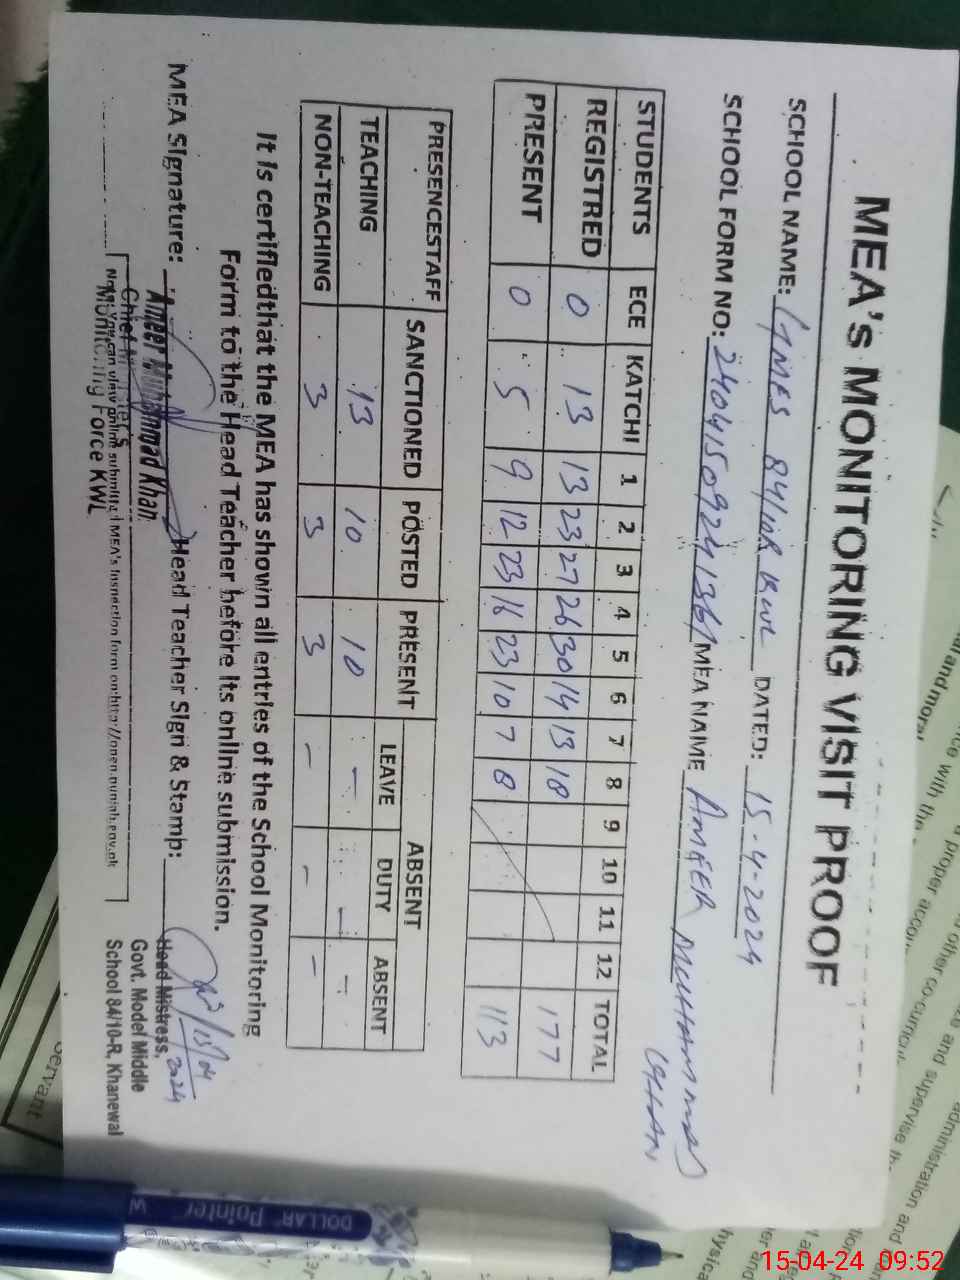 MEA's MONITORING VISIT PROOF
SCHOOL NAME: GMES 84/10R KWL DATED: 15-4-2024
SCHOOL FORM NO: 2404150924136/ MEA NAME AMEER MUHAMMAD KHAN
STUDENTS ECE KATCHI 1 2 3 4 5 6 7 8 9 10 11 12 TOTAL
REGISTRED 0 13 13 23 27 26 30 14 13 18 177
PRESENT 0 5 9 12 23 16 23 10 7 8 113
PRESENCESTAFF SANCTIONED POSTED PRESENT ABSENT
LEAVE DUTY ABSENT
TEACHING 13 10 10 - - -
NON-TEACHING 3 3 3 - - -
It is certifiedthat the MEA has shown all entries of the School Monitoring
Form to the Head Teacher before its online submission.
MEA Signature: Head Teacher Sign & Stamp:
15/04/2024
Ameer Muhammad Khan
Chief Minister's
Monitoring Force KWL
Note: You can view online submitted MEA's Inspection form on http://open.punjab.gov.pk
Head Mistress,
Govt. Model Middle
School 84/10-R, Khanewal
DOLLAR Pointer
and moral
ice with the
proper accou
d other co-curricul
and supervise the
administration and
Servant
15-04-24 09:52